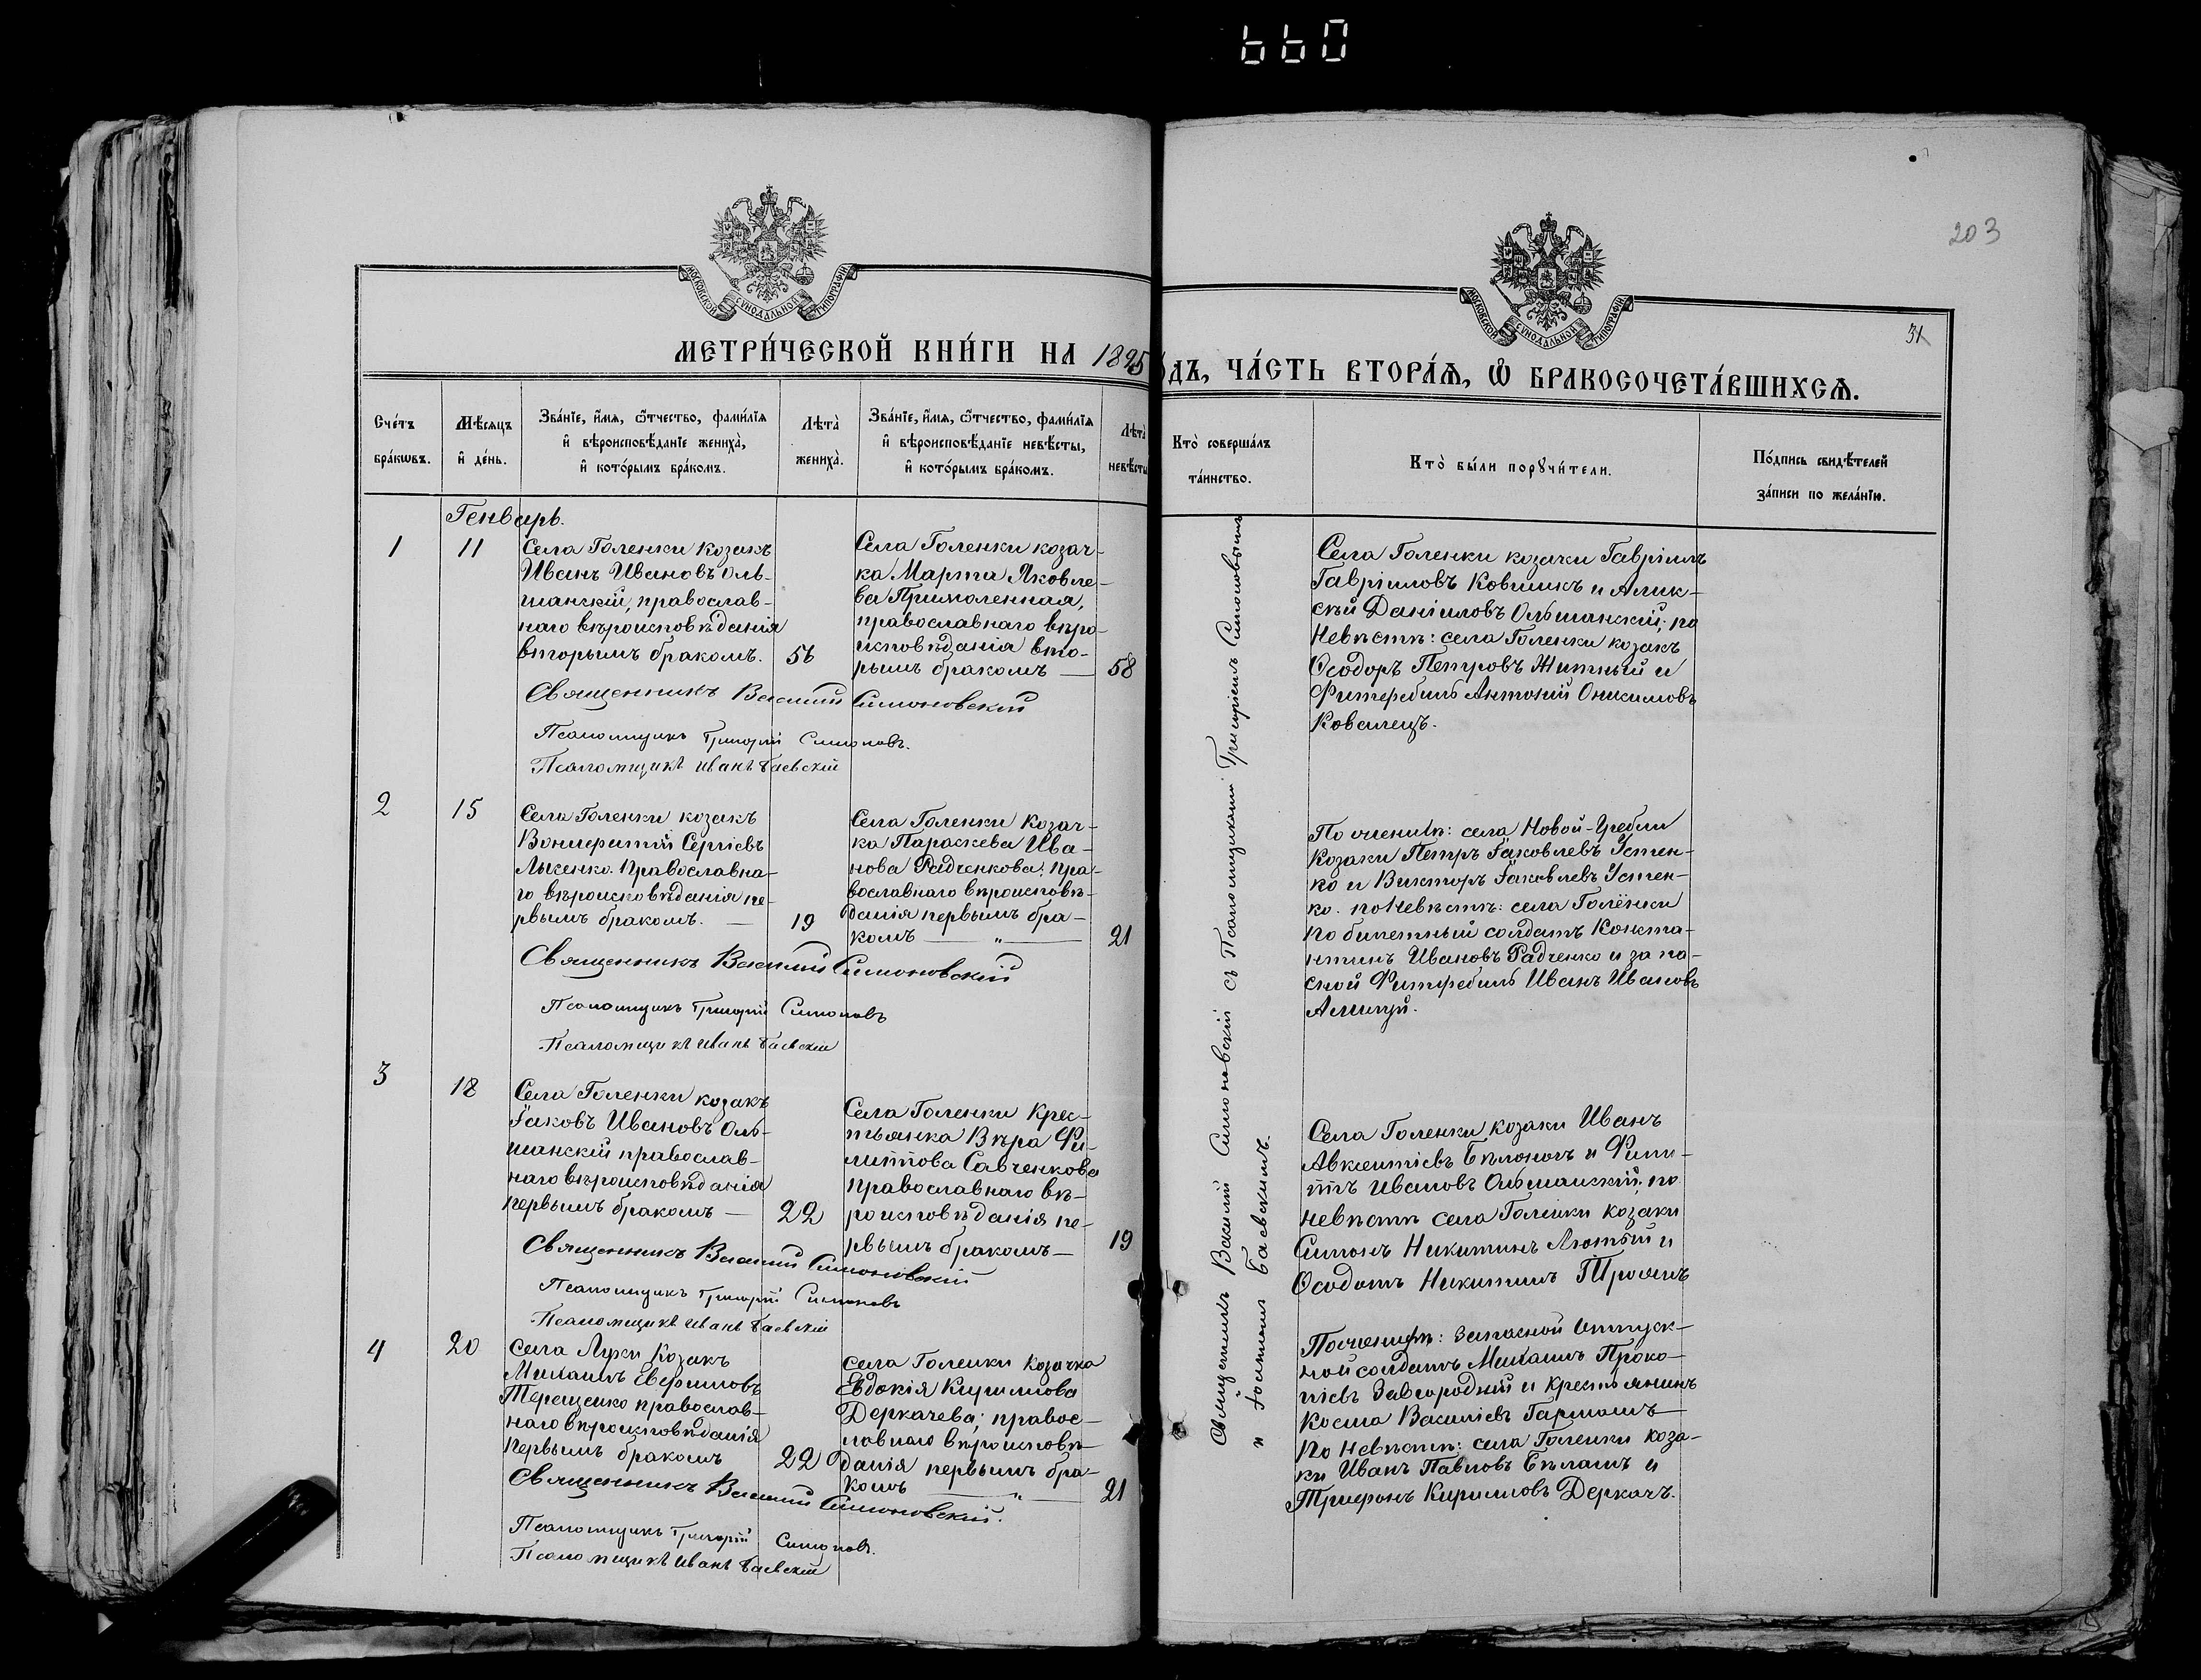 660
203
МОСКОВСКОЙ СѴНОДАЛЬНОЙ ТИПОГРАФІИ
МОСКОВСКОЙ СѴНОДАЛЬНОЙ ТИПОГРАФІИ
31
МЕТРИ́ЧЕСКОЙ КНИ́ГИ НА 1895
ДЪ, ЧА́СТЬ ВТОРА́Я, Ѽ БРАКОСОЧЕТА́ВШИХСЯ.
Сче́тъ
бра́кѡвъ.
Мѣ́сяцъ
и҆ де́нь.
Зва́нїе, и҆́мя, ѻ҆́тчество, фами́лїя
и҆ вѣроисповѣ́данїе жениха̀,
и҆ кото́рымъ бра́комъ.
Лѣта̀
жениха̀.
Зва́нїе, и҆́мя, ѻ҆́тчество, фами́лїя
и҆ вѣроисповѣ́данїе невѣ́сты,
и҆ кото́рымъ бра́комъ.
Лѣта̀
невѣ́сты
Кто̀ соверша́лъ
та́инство.
Кто̀ бы́ли порꙋчи́тели.
По́дпись свидѣ́телей
за́писи по жела́нїю.
Генварь.
1
11
Села Голенки козакъ
Иванъ Ивановъ Оль-
шанскій, православ-
наго вѣроисповѣданія
вторымъ бракомъ.
56
Села Голенки козач-
ка Марта Яковле-
ва Примоленная,
православнаго вѣро-
исповѣданія вто-
рымъ бракомъ —
58
Села Голенки козаки Гавріилъ
Гавріиловъ Ковшикъ и Алик-
сѣй Даніиловъ Ольшанскій; по
Невѣстѣ: села Голенки козакъ
Ѳеодоръ Петровъ Житный и
Фитфебиль Антоній Оникимовъ
Ковалецъ.
Священникъ Василій Симоновскій
Псаломщикъ Григорій Симоновъ.
Псаломщикъ Иванъ Баевскій
2
15
Села Голенки козакъ
Вонифатій Сергіевъ
Лысенко. Православна-
го вѣроисповѣданія пе-
рвымъ бракомъ. —
19
Села Голенки Козач-
ка Параскева Ива-
нова Радченкова; пра-
вославнаго вѣроисповѣ-
данія первымъ бра-
комъ — „ —
21
По женихѣ: села Новой-Гребли
Козаки Петръ Іаковлевъ Устен-
ко и Викторъ Іаковлевъ Устен-
ко. по Невѣстѣ: села Голенки
по билетный солдатъ Конста-
нтинъ Ивановъ Радченко и запа-
сной Фитфебиль Иванъ Ивановъ
Священникъ Василій Симоновскій
Псаломщикъ Григорій Симоновъ
Псаломщикъ Иванъ Баевскій
3
18
Села Голенки козакъ
Іаковъ Ивановъ Оль-
шанскій православ-
наго вѣроисповѣданія
первымъ бракомъ —
22
Села Голенки Крес-
тьянка Вѣра Фи-
липпова Савченкова
православнаго вѣ-
роисповѣданія пе-
рвымъ бракомъ —
19
Села Голенки козаки Иванъ
Авксентіевъ Бѣлоногъ и Фили-
ппъ Ивановъ Ольшанскій; по
невѣстѣ села Голенки козаки
Симонъ Никитинъ Лютый и
Ѳеодотъ Никитинъ
Священникъ Василій Симоновскій
Псаломщикъ Григорій Симоновъ
Псаломщикъ Иванъ Баевскій
4
20
Села Луки Козакъ
Михаилъ Евфимовъ
Терещенко православ-
наго вѣроисповѣданія
первымъ бракомъ
22
Села Голенки козачка
Евдокія Кириллова
Деркачева; правос-
лавнаго вѣроисповѣ-
данія первымъ бра-
комъ — „ —
21
По женихѣ: Запасной Отпуск-
ной солдатъ Михаилъ Проко-
піевъ Завгородній и Крестьянинъ
Косма Василіевъ Гармашъ
По Невѣстѣ: села Голенки коза-
ки Иванъ Павловъ Бѣлашъ и
Трифонъ Кирилловъ Деркачъ.
Священникъ Василій Симоновскій.
Псаломщикъ Григорій Симоновъ.
Псаломщикъ Иванъ Баевскій
Священникъ Василій Симоновскій съ Псаломщиками Григоріемъ Симоновымъ
и Іоанномъ Баевскимъ.